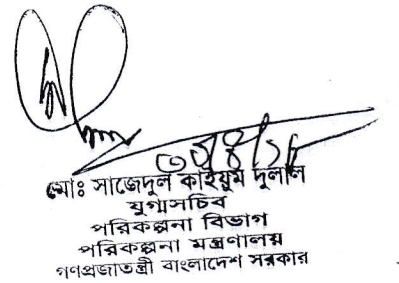 মোঃ সাজেদুল কাইয়ুম দুলাল
যুগ্মসচিব
পরিকল্পনা বিভাগ
পরিকল্পনা মন্ত্রণালয়
গণপ্রজাতন্ত্রী বাংলাদেশ সরকার